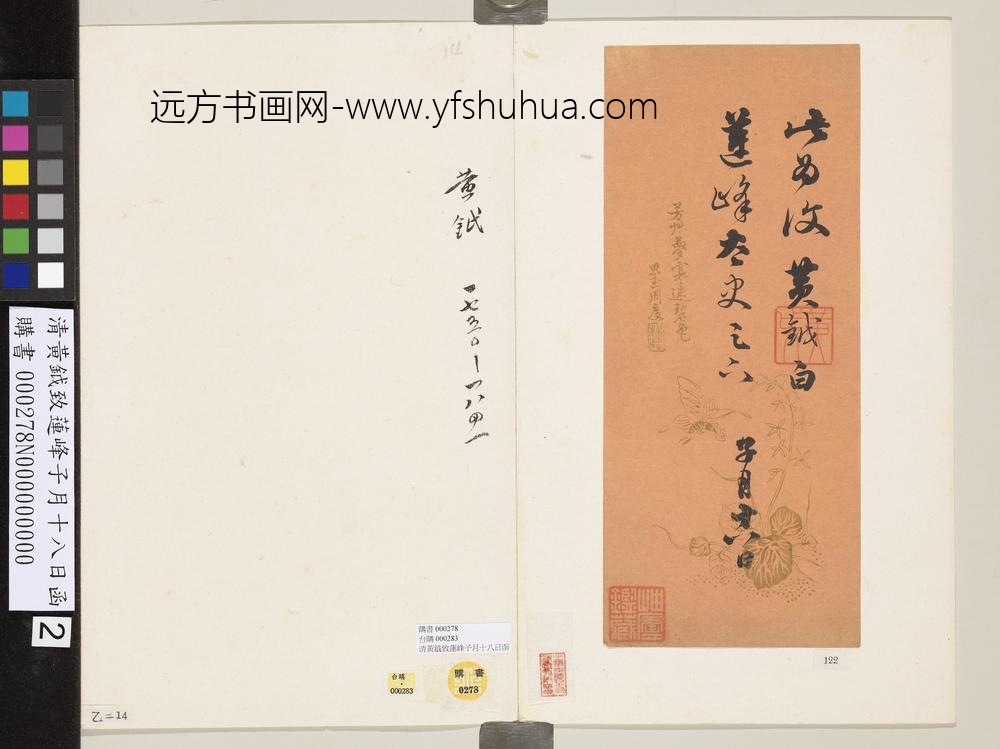 远方书画网-www.yfshuhua.com
此為後
黃鉞白
蓮峰太史之六
子月十八日
芳艸夢宴迷
黃鉞 一七五〇—一八四一
清黃鉞致蓮峰子月十八日函
購書 000278N000000000
2
購書 000278
台購 000283
清黃鉞致蓮峰子月十八日函
台購
000283
購書
0278
122
乙=14
鑑藏